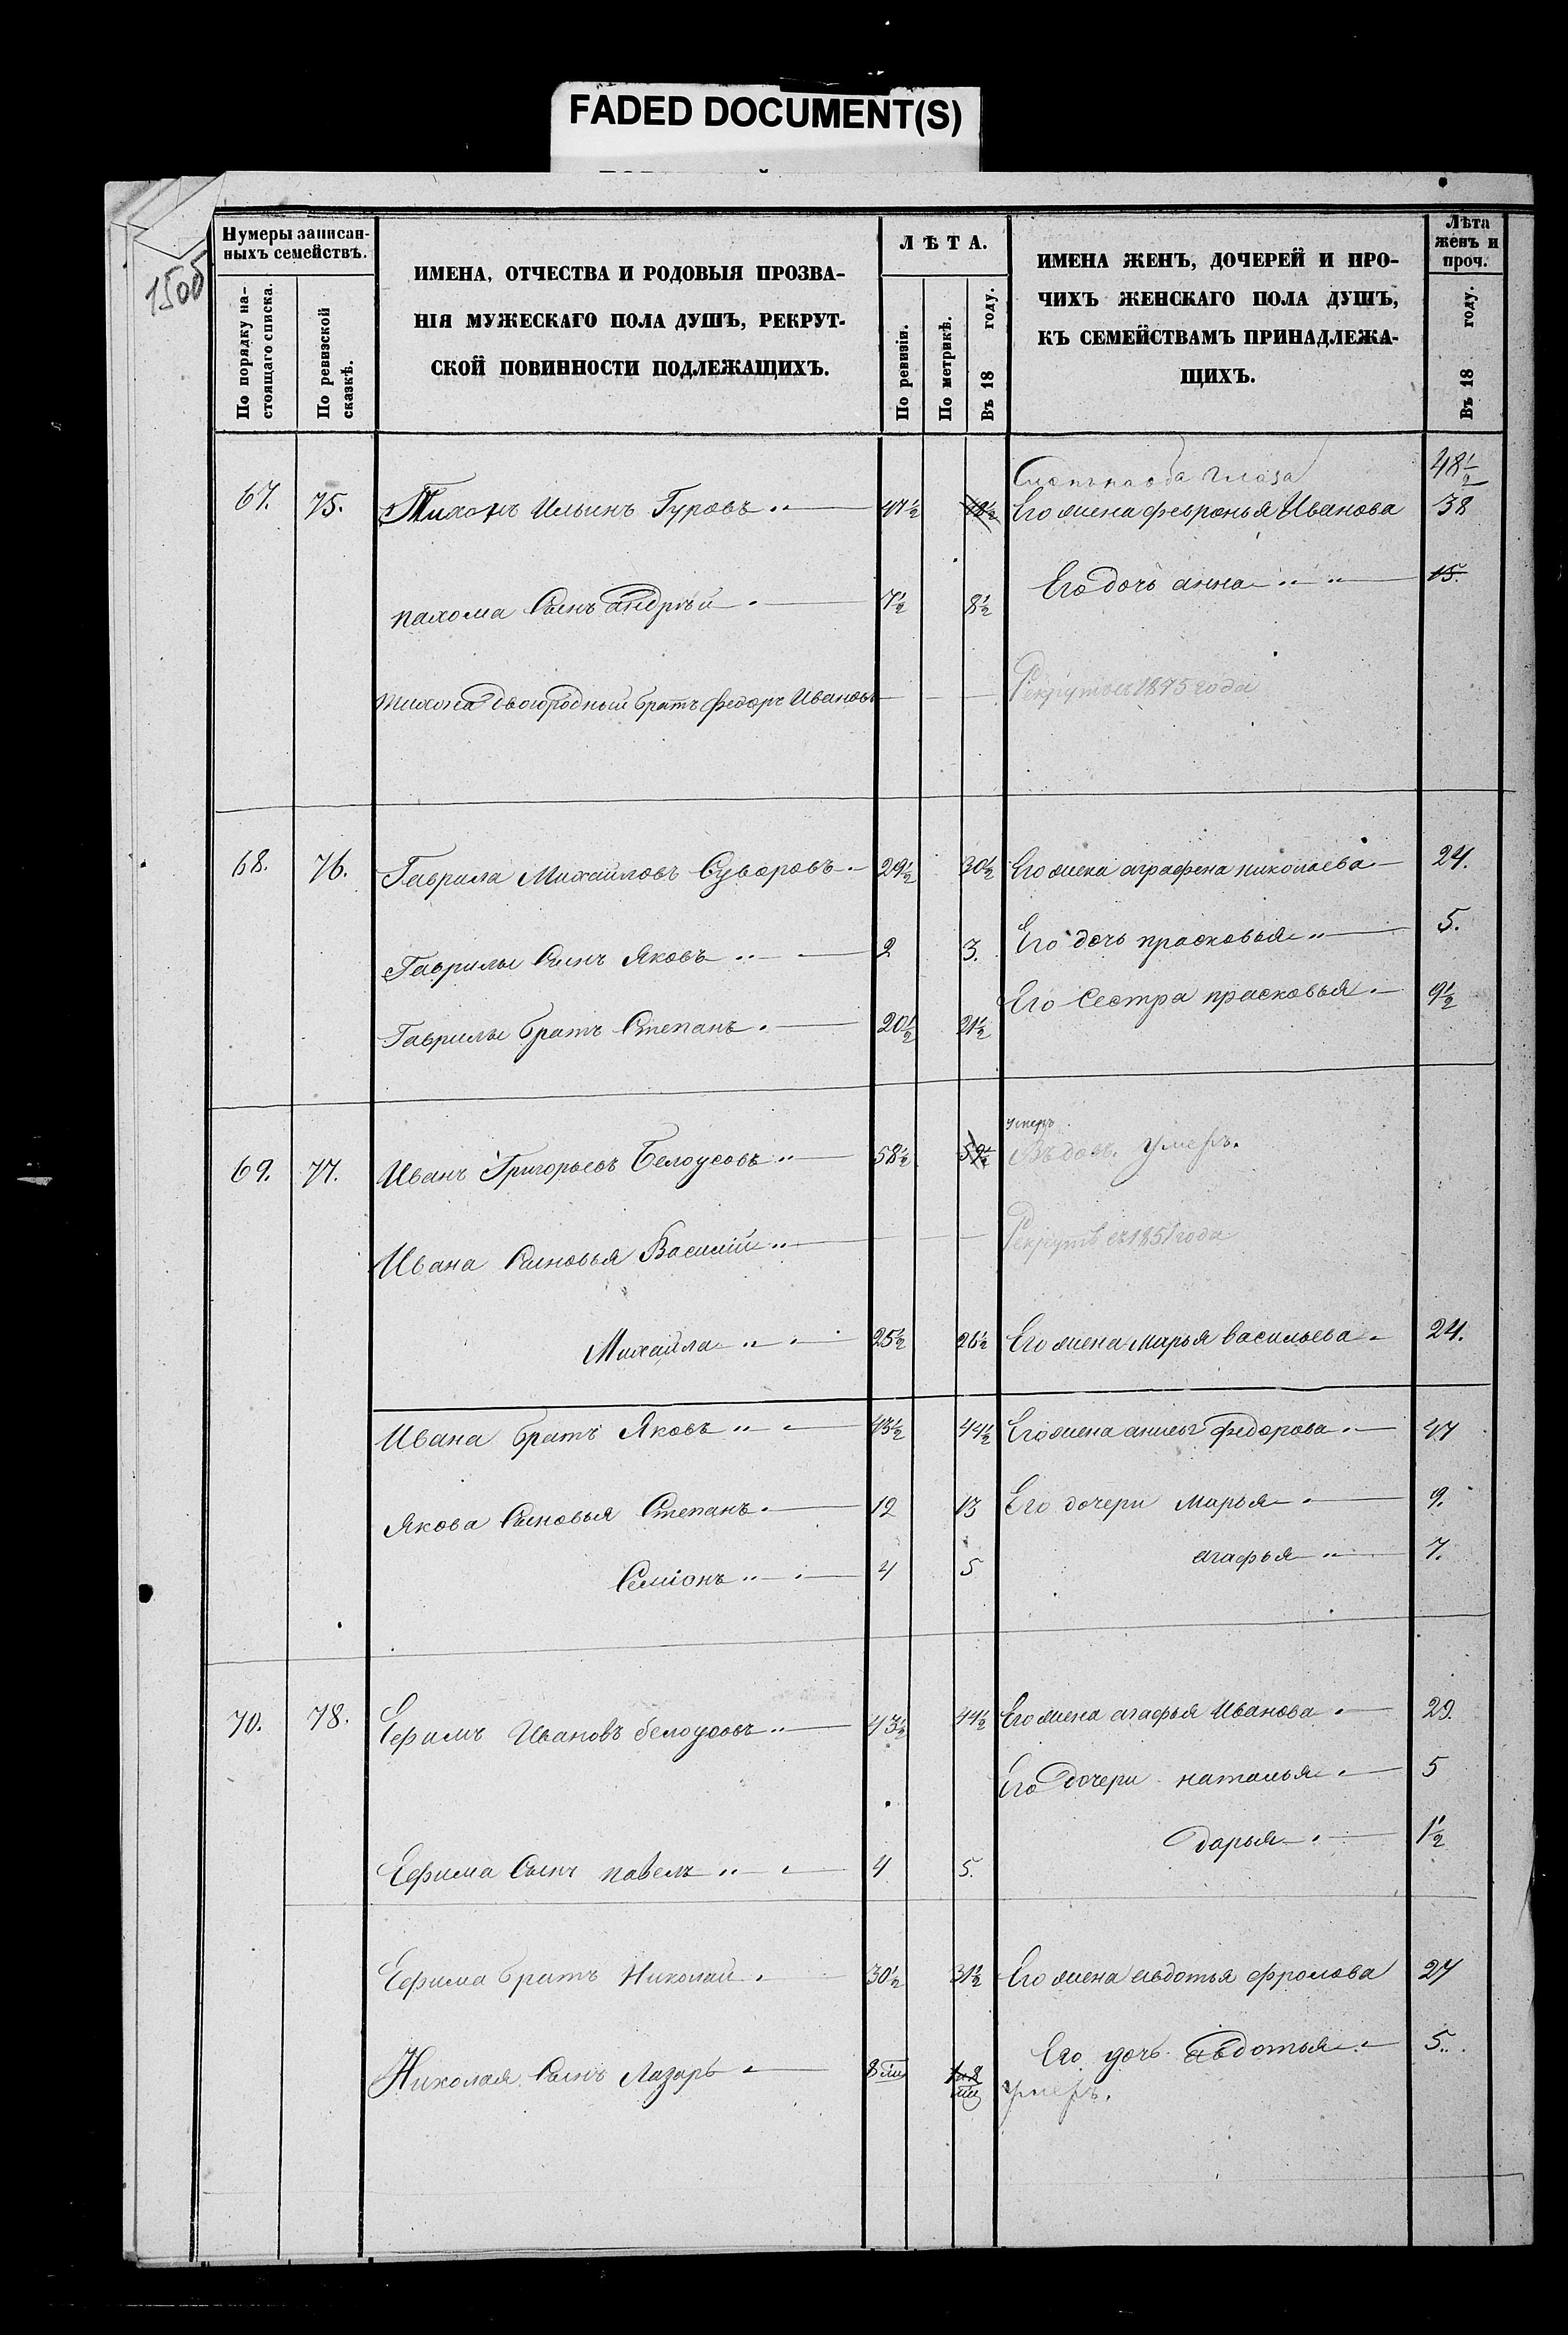 FADED DOCUMENT(S)
1505
Нумеры записан-
ныхъ семействъ.
По порядку на-
стоящаго списка.
По ревизской
сказкѣ.
ИМЕНА, ОТЧЕСТВА И РОДОВЫЯ ПРОЗВА-
НІЯ МУЖЕСКАГО ПОЛА ДУШЪ, РЕКРУТ-
СКОЙ ПОВИННОСТИ ПОДЛЕЖАЩИХЪ.
ЛѢТА.
По ревизіи.
По метрикѣ.
Въ 18 году.
ИМЕНА ЖЕНЪ, ДОЧЕРЕЙ И ПРО-
ЧИХЪ ЖЕНСКАГО ПОЛА ДУШЪ,
КЪ СЕМЕЙСТВАМЪ ПРИНАДЛЕЖА-
ЩИХЪ.
Лѣта
женъ и
проч.
Въ 18 году.
глаза 48 1/2
67. 75. Тихонъ Ильинъ Гуровъ 47 1/2 48 1/2 Его жена февронья Иванова 38
Его дочь анна 15.
пахома Сынъ андрѣй 7 1/2 8 1/2
тихона двоюродный братъ федоръ Ивановъ Рекрутъ съ 1875 года
68. 76. Гаврила Михайловъ Суворовъ 29 1/2 30 1/2 Его жена аграфена николаева 24.
Гаврилы Сынъ Яковъ 2 3. Его дочь прасковья 5.
Гаврилы братъ Степанъ 20 1/2 21 1/2 Его Сестра прасковья 9 1/2
умеръ
69. 77. Иванъ Григорьевъ Белоусовъ 58 1/2 59 1/2 Вдовъ. умеръ.
Ивана Сыновья Василій Рекрутъ съ 1851 года
Михайла 25 1/2 26 1/2 Его жена марья васильева 24.
Ивана братъ Яковъ 43 1/2 44 1/2 Его жена федорова 47
Якова Сыновья Степанъ 12 13 Его дочери марья 9.
Семіонъ 4 5 агафья 7.
70. 78. Ефимъ Ивановъ белоусовъ 43 1/2 44 1/2 Его жена агафья Иванова 29.
Его дочери наталья 5
дарья 1 1/2
Ефима Сынъ павелъ 4 5.
Ефима братъ Николай 30 1/2 31 1/2 Его жена авдотья фролова 27
Его дочь авдотья 5.
Николая Сынъ Лазарь 8 м умеръ.